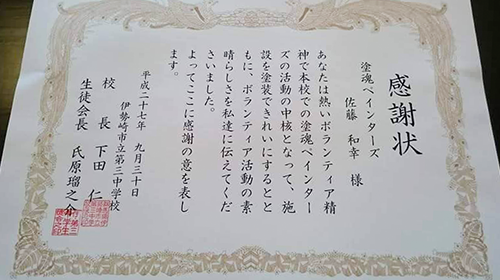 感謝状
塗魂ペインターズ
佐藤 和幸 様
あなたは熱いボランティア精
神で本校での塗魂ペインター
ズの活動の中核となって、施
設を塗装できれいにするとと
もに、ボランティア活動の素
晴らしさを私達に伝えてくだ
さいました。
よってここに感謝の意を表し
ます。
平成二十七年 九月三十日
伊勢崎市立第三中学校
校長 下田 仁
生徒会長 氏原瑠之介